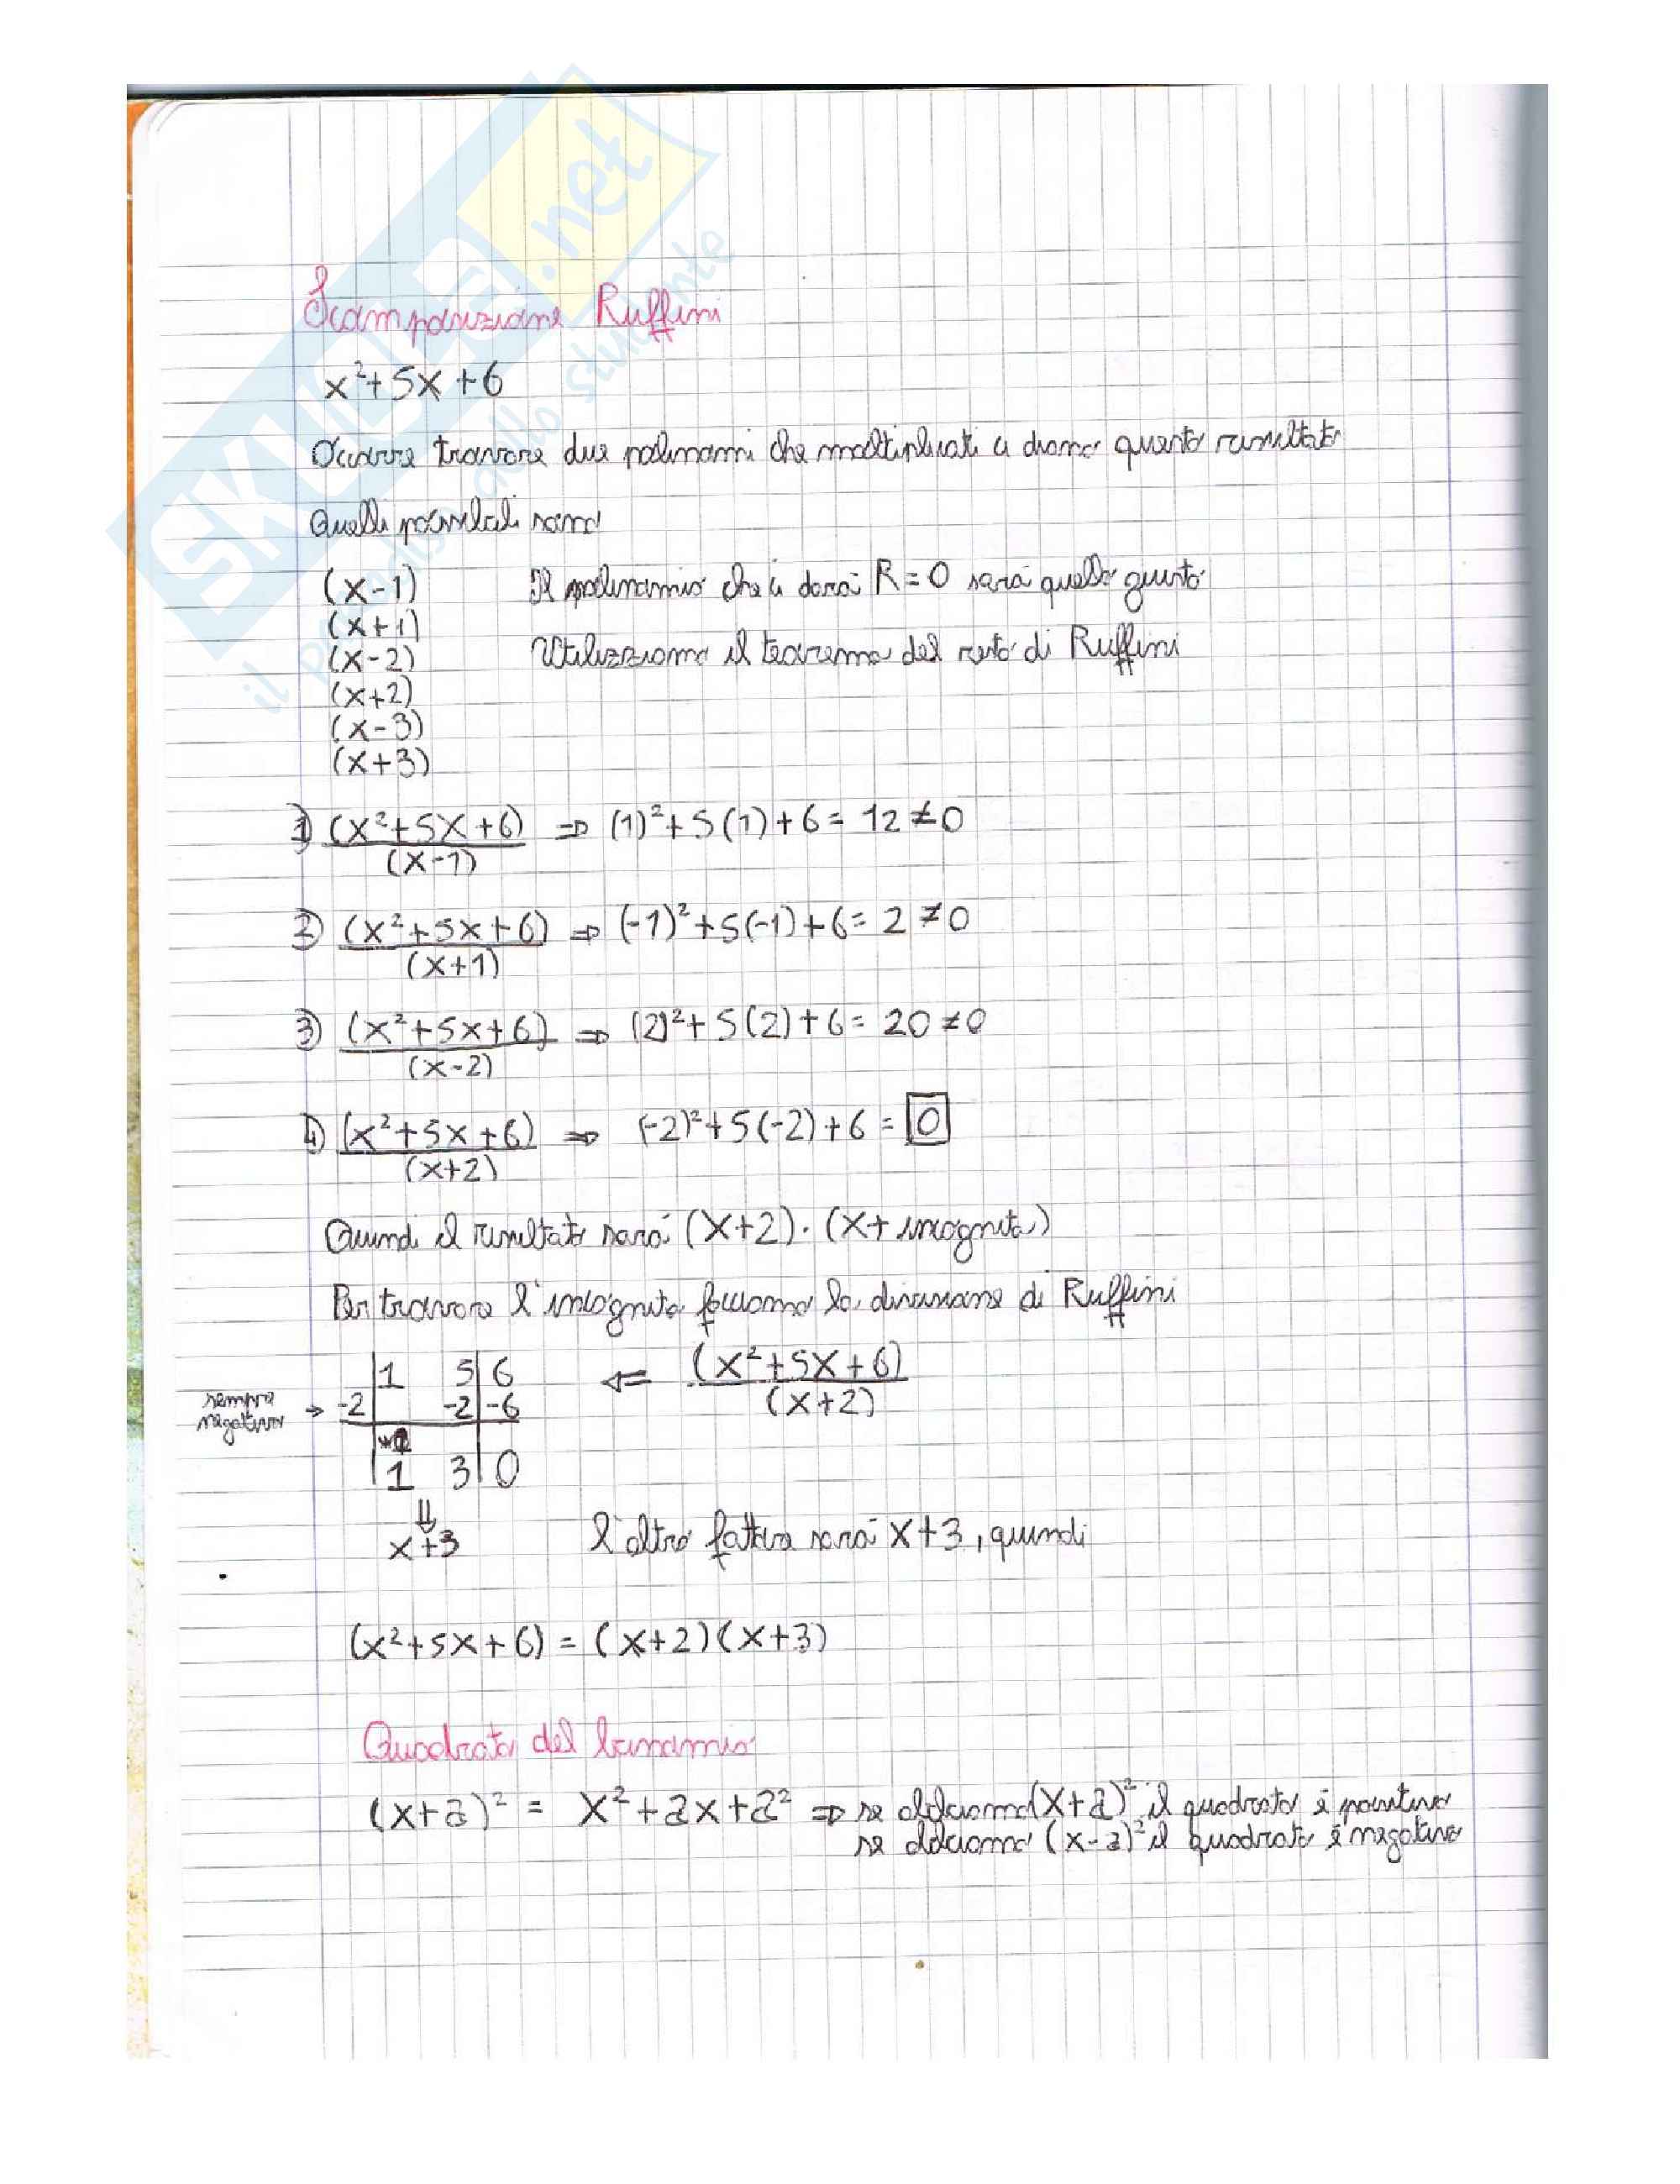 SKUOLA.net
il paradiso dello studente
Scomposizione Ruffini
x²+5x+6
Occorre trovare due polinomi che moltiplicati ci diano questo risultato
Quelli possibili sono
(x-1) Il polinomio che ci darà R=0 sarà quello giusto
(x+1)
(x-2) Utilizziamo il teorema del resto di Ruffini
(x+2)
(x-3)
(x+3)
1) (x²+5x+6) ⇒ (1)²+5(1)+6= 12 ≠0
(x-1)
2) (x²+5x+6) ⇒ (-1)²+5(-1)+6= 2 ≠0
(x+1)
3) (x²+5x+6) ⇒ (2)²+5(2)+6= 20 ≠0
(x-2)
4) (x²+5x+6) ⇒ (-2)²+5(-2)+6= 0
(x+2)
Quindi il risultato sarà (x+2)·(x+incognita)
Per trovare l'incognita facciamo la divisione di Ruffini
1 5 6 ⇐ (x²+5x+6)
sempre negativo → -2 -2 -6 (x+2)
1 3 0
⇓
x+3 l'altro fattore sarà x+3, quindi
(x²+5x+6) = (x+2)(x+3)
Quadrato del binomio
(x+a)² = x²+2x+a² ⇒ se abbiamo (x+a)² il quadrato è positivo
se abbiamo (x-a)² il quadrato è negativo